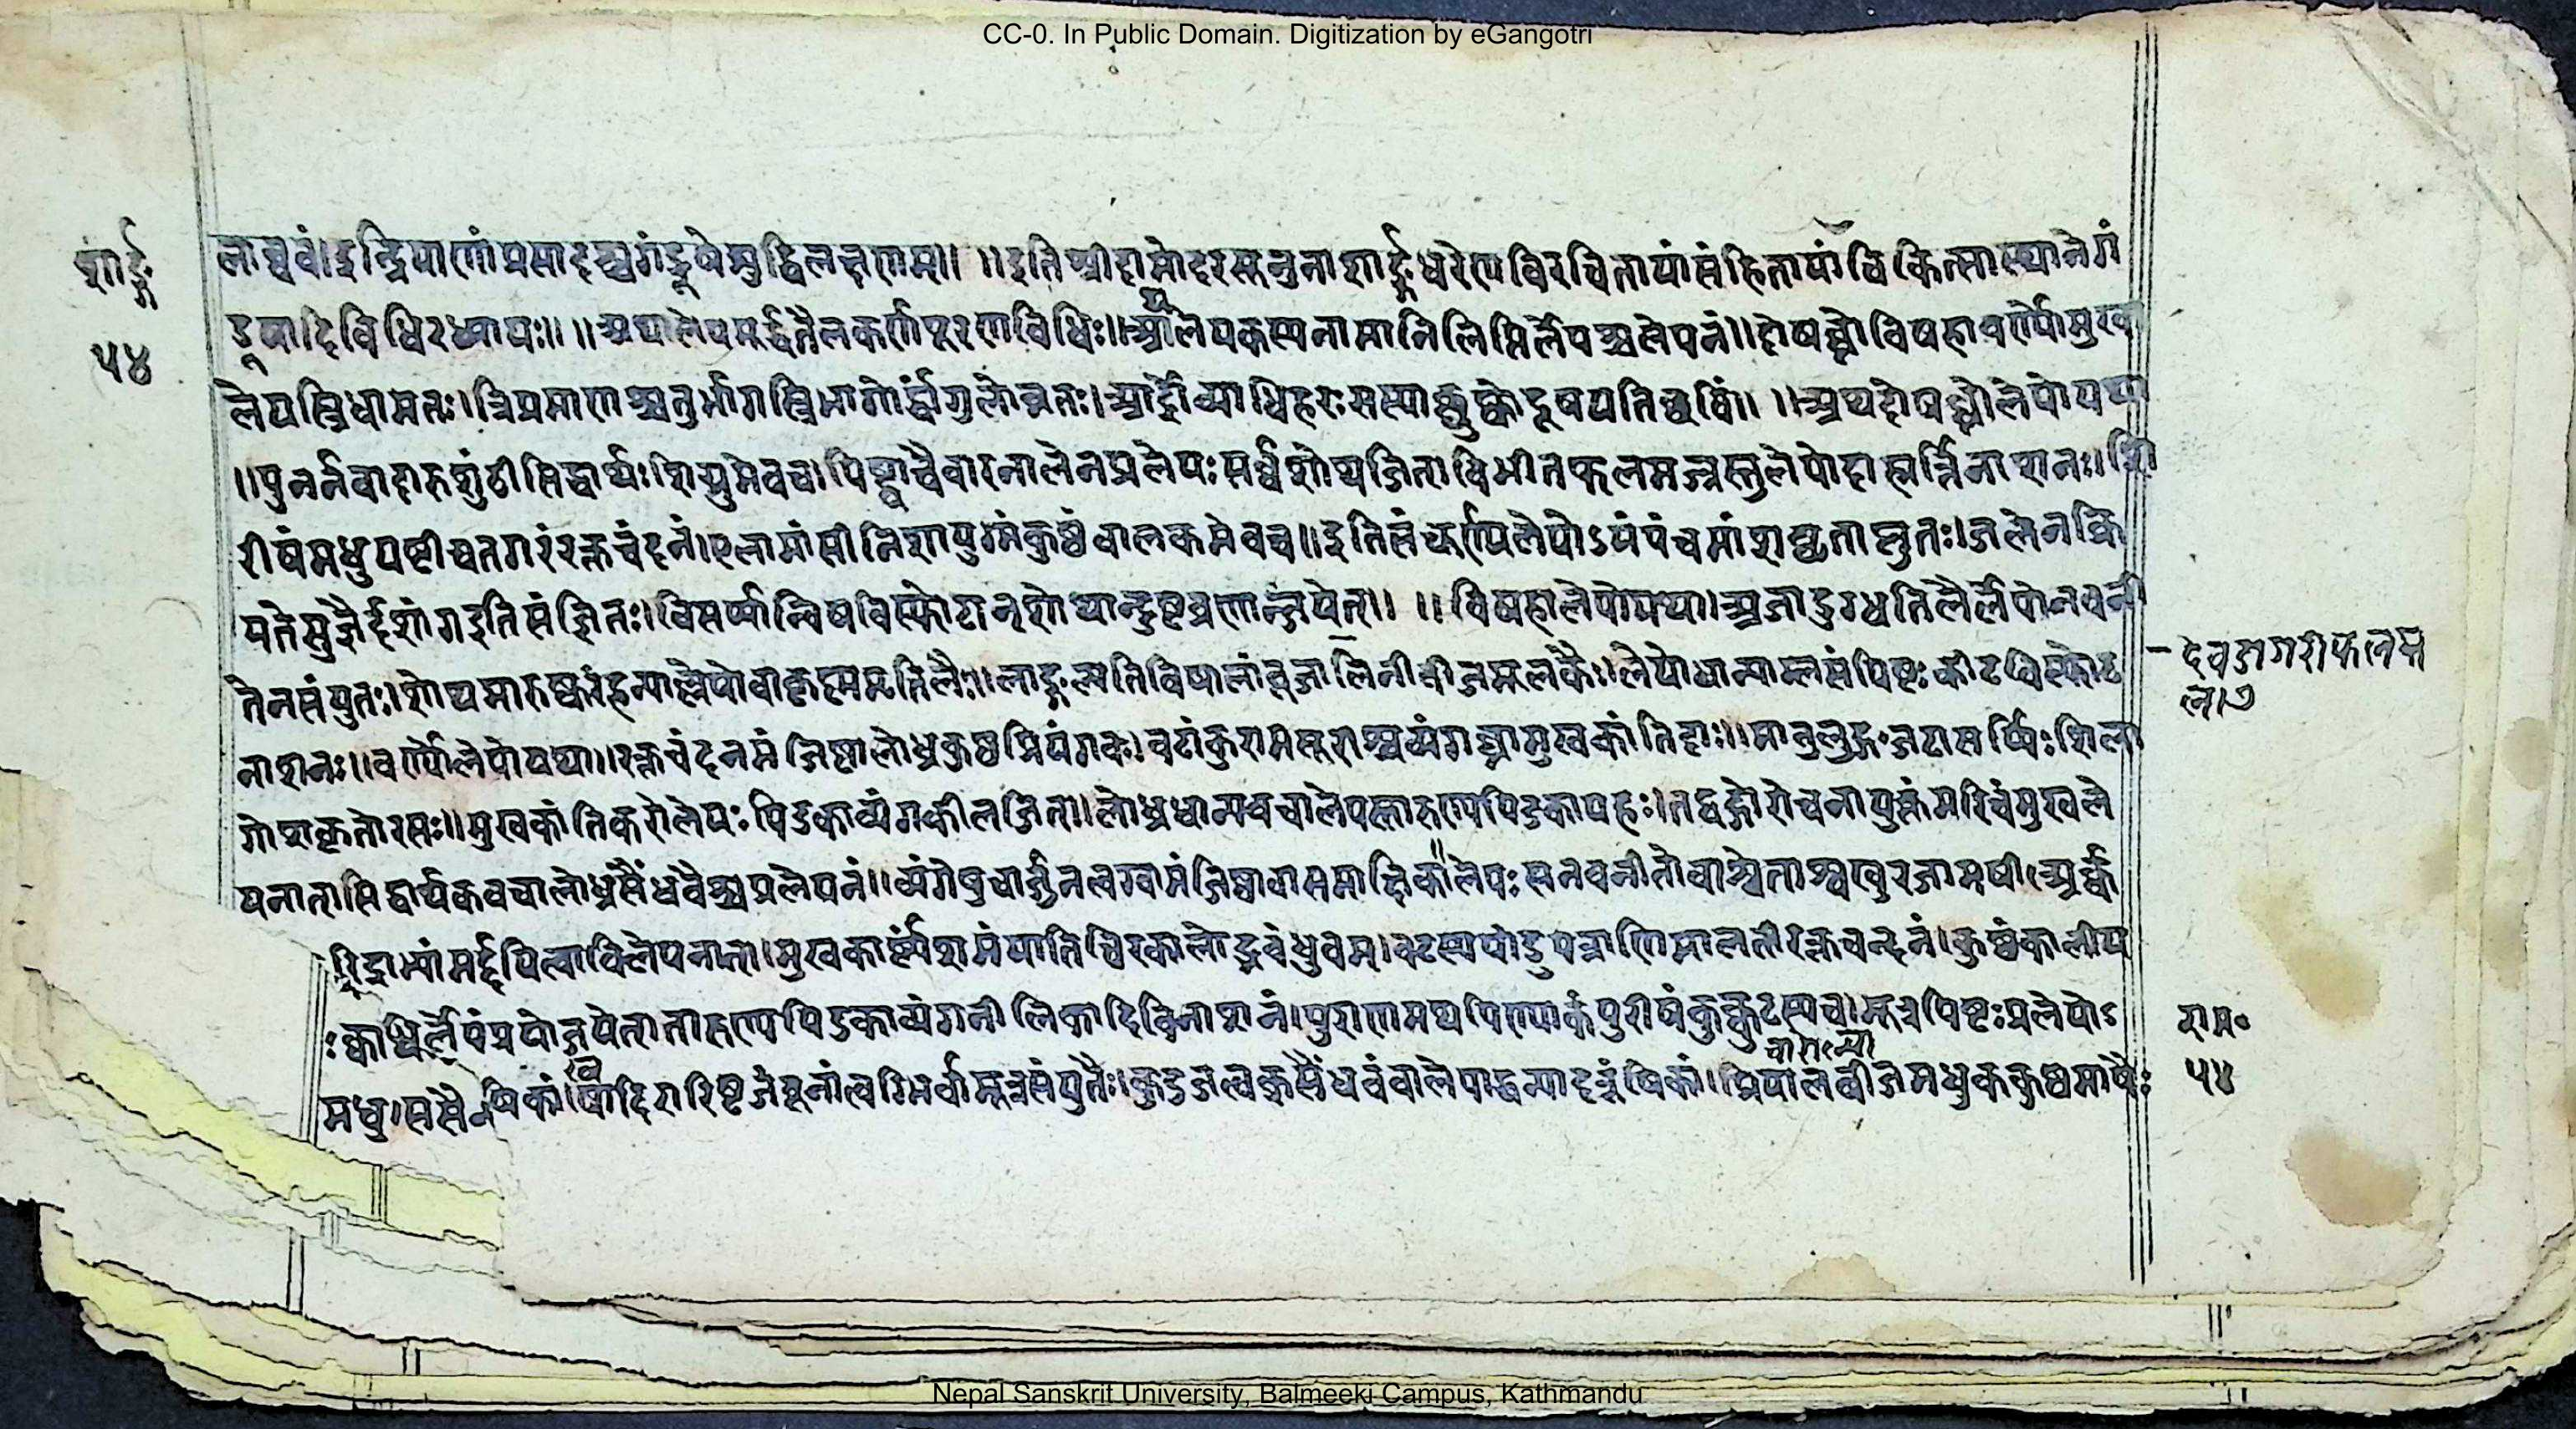 CC-0. In Public Domain. Digitization by eGangotri
शार्ङ्ग
५४
लाघवं।इन्द्रियाणांप्रसादश्चगंडूषेशुद्धिलक्षणम्॥ ॥इतिश्रीदामोदरसूनुनाशार्ङ्गधरेणविरचितायांसंहितायांचिकित्सास्थानेगं
डूषादिविधिरध्यायः॥ ॥अथालेपमूर्द्धतैलकर्णपूरणविधिः॥आलेपकस्यनामानिलिप्तिर्लेपश्चलेपनं॥दोषघ्नोविषहावर्ण्योमुख
लेपस्त्रिधामतः।त्रिप्रमाणश्चतुर्भागस्त्रिभागोर्द्धांगुलोन्नतः।आर्द्रोव्याधिहरःसस्याच्छुष्कोदूषयतिच्छविं॥ ॥अथदोषघ्नोलेपोयथा
॥पुनर्नवादारुशुंठीसिद्धार्थःशिग्रुमेवच।पिष्ट्वाचैवारनालेनप्रलेपःसर्वशोथजित्।विभीतफलमज्जस्तुलेपोदाहार्त्तिनाशनः।शि
रीषंमधुयष्टीचतगरंरक्तचंदनं।एलामांसीनिशायुग्मंकुष्ठंवालकमेवच॥इतिसंचूर्ण्यलेपोऽयंपंचमांशघृताप्लुतः।जलेनक्रि
यतेसुज्ञैर्दशांगइतिसंज्ञितः।विसर्प्पान्विषविस्फोटान्शोथान्दुष्टव्रणान्जयेत्॥ ॥विषहालेपोयथा।अजादुग्धतिलैर्लेपोनवनी
तेनसंयुतः।शोथमारुष्करंहन्याल्लेपोवाकृष्णमृत्तिलैः॥लाङ्गल्यतिविषालांबूजालिनीबीजमूलकैः।लेपोधान्याम्लसंपिष्टःकीटविस्फोट
नाशनः॥वर्ण्योलेपोयथा॥रक्तचंदनमंजिष्टालोध्रकुष्ठप्रियंगवः।वटांकुरामसूराश्चव्यंगघ्नामुखकांतिदाः॥मातुलुङ्गजटासर्प्पिःशिला
गोशकृतोरसः॥मुखकांतिकरोलेपःपिडकाव्यंगकीलजित्॥लोध्रधान्यवचालेपस्तारुण्यपिडकापहः।तद्वद्गोरोचनायुक्तंमरिचंमुखले
पनात्।सिद्धार्थकवचालोध्रसैंधवैश्चप्रलेपनं॥व्यंगेषुचार्जुनत्वग्वामंजिष्ठावासमाक्षिका॥लेपःसनवनीतोवाश्वेताश्वखुरजामषी।अर्क्क
रिद्राभ्यांमर्द्दयित्वाविलेपनात्।मुखकार्ष्ण्यंशमंयातिचिरकालोद्भवंध्रुवम्।वटस्यपांडुपत्राणिमालतीरक्तचन्दनं।कुष्ठंकालीय
मधु।ससैन्धवैर्लेपंप्रयोजयेत्।तारुण्यपिडकाव्यंगनीलिकादिविनाशनं।पुराणमथपिण्याकंपुरीषंकुक्कुटस्यच।मूत्रपिष्टःप्रलेपोऽ
षिकां।खदिरारिष्टजंबूनांत्वग्भिर्वामूत्रसंयुतैः।कुटजत्वक्सैंधवंवालेपाद्धन्यादरुंषिकां।प्रियालबीजमधुककुष्ठमाषैः
राम॰
५४
Nepal Sanskrit University, Balmeeki Campus, Kathmandu